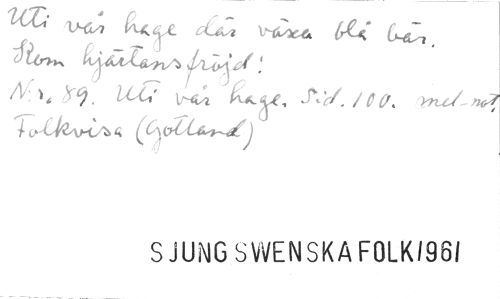 Uti vår hage där växa blå bär.
Kom hjärtansfröjd!
N:r. 89. Uti vår hage. Sid. 100. mel-not.
Folkvisa (Gotland)
SJUNG SWENSKA FOLK 1961